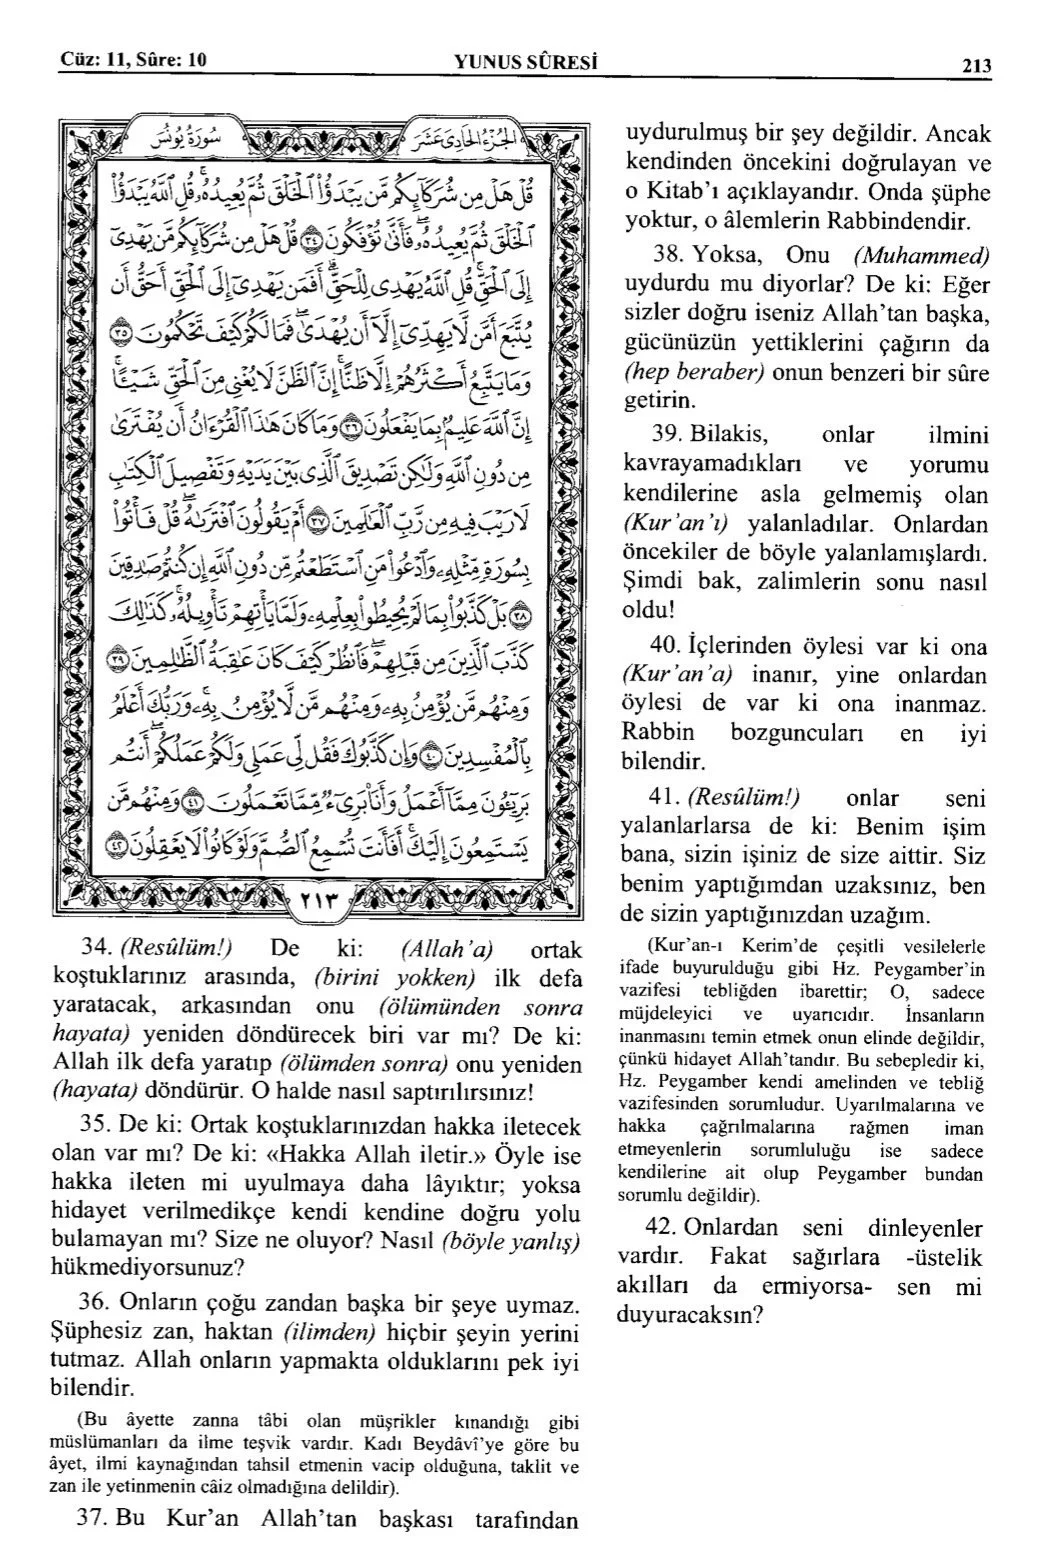 Cüz: 11, Sûre: 10
YUNUS SÛRESİ
213
سورة يونس
الجزء الحادى عشر
قُلْ هَلْ مِن شُرَكَآئِكُم مَّن يَبْدَؤُا۟ ٱلْخَلْقَ ثُمَّ يُعِيدُهُۥ ۚ قُلِ ٱللَّهُ يَبْدَؤُا۟
ٱلْخَلْقَ ثُمَّ يُعِيدُهُۥ ۖ فَأَنَّىٰ تُؤْفَكُونَ ٣٤ قُلْ هَلْ مِن شُرَكَآئِكُم مَّن يَهْدِىٓ
إِلَى ٱلْحَقِّ ۚ قُلِ ٱللَّهُ يَهْدِى لِلْحَقِّ ۗ أَفَمَن يَهْدِىٓ إِلَى ٱلْحَقِّ أَحَقُّ أَن
يُتَّبَعَ أَمَّن لَّا يَهِدِّىٓ إِلَّآ أَن يُهْدَىٰ ۖ فَمَا لَكُمْ كَيْفَ تَحْكُمُونَ ٣٥
وَمَا يَتَّبِعُ أَكْثَرُهُمْ إِلَّا ظَنًّا ۚ إِنَّ ٱلظَّنَّ لَا يُغْنِى مِنَ ٱلْحَقِّ شَيْـًٔا ۚ
إِنَّ ٱللَّهَ عَلِيمٌۢ بِمَا يَفْعَلُونَ ٣٦ وَمَا كَانَ هَٰذَا ٱلْقُرْءَانُ أَن يُفْتَرَىٰ
مِن دُونِ ٱللَّهِ وَلَٰكِن تَصْدِيقَ ٱلَّذِى بَيْنَ يَدَيْهِ وَتَفْصِيلَ ٱلْكِتَٰبِ
لَا رَيْبَ فِيهِ مِن رَّبِّ ٱلْعَٰلَمِينَ ٣٧ أَمْ يَقُولُونَ ٱفْتَرَىٰهُ ۖ قُلْ فَأْتُوا۟
بِسُورَةٍ مِّثْلِهِۦ وَٱدْعُوا۟ مَنِ ٱسْتَطَعْتُم مِّن دُونِ ٱللَّهِ إِن كُنتُمْ صَٰدِقِينَ
٣٨ بَلْ كَذَّبُوا۟ بِمَا لَمْ يُحِيطُوا۟ بِعِلْمِهِۦ وَلَمَّا يَأْتِهِمْ تَأْوِيلُهُۥ ۚ كَذَٰلِكَ
كَذَّبَ ٱلَّذِينَ مِن قَبْلِهِمْ ۖ فَٱنظُرْ كَيْفَ كَانَ عَٰقِبَةُ ٱلظَّٰلِمِينَ ٣٩
وَمِنْهُم مَّن يُؤْمِنُ بِهِۦ وَمِنْهُم مَّن لَّا يُؤْمِنُ بِهِۦ ۚ وَرَبُّكَ أَعْلَمُ
بِٱلْمُفْسِدِينَ ٤٠ وَإِن كَذَّبُوكَ فَقُل لِّى عَمَلِى وَلَكُمْ عَمَلُكُمْ ۖ أَنتُم
بَرِيٓـُٔونَ مِمَّآ أَعْمَلُ وَأَنَا۠ بَرِىٓءٌ مِّمَّا تَعْمَلُونَ ٤١ وَمِنْهُم مَّن
يَسْتَمِعُونَ إِلَيْكَ ۚ أَفَأَنتَ تُسْمِعُ ٱلصُّمَّ وَلَوْ كَانُوا۟ لَا يَعْقِلُونَ ٤٢
٢١٣
34. (Resûlüm!) De ki: (Allah'a) ortak
koştuklarınız arasında, (birini yokken) ilk defa
yaratacak, arkasından onu (ölümünden sonra
hayata) yeniden döndürecek biri var mı? De ki:
Allah ilk defa yaratıp (ölümden sonra) onu yeniden
(hayata) döndürür. O halde nasıl saptırılırsınız!
35. De ki: Ortak koştuklarınızdan hakka iletecek
olan var mı? De ki: «Hakka Allah iletir.» Öyle ise
hakka ileten mi uyulmaya daha lâyıktır; yoksa
hidayet verilmedikçe kendi kendine doğru yolu
bulamayan mı? Size ne oluyor? Nasıl (böyle yanlış)
hükmediyorsunuz?
36. Onların çoğu zandan başka bir şeye uymaz.
Şüphesiz zan, haktan (ilimden) hiçbir şeyin yerini
tutmaz. Allah onların yapmakta olduklarını pek iyi
bilendir.
(Bu âyette zanna tâbi olan müşrikler kınandığı gibi
müslümanları da ilme teşvik vardır. Kadı Beydâvî'ye göre bu
âyet, ilmi kaynağından tahsil etmenin vacip olduğuna, taklit ve
zan ile yetinmenin câiz olmadığına delildir).
37. Bu Kur'an Allah'tan başkası tarafından
uydurulmuş bir şey değildir. Ancak
kendinden öncekini doğrulayan ve
o Kitab'ı açıklayandır. Onda şüphe
yoktur, o âlemlerin Rabbindendir.
38. Yoksa, Onu (Muhammed)
uydurdu mu diyorlar? De ki: Eğer
sizler doğru iseniz Allah'tan başka,
gücünüzün yettiklerini çağırın da
(hep beraber) onun benzeri bir sûre
getirin.
39. Bilakis, onlar ilmini
kavrayamadıkları ve yorumu
kendilerine asla gelmemiş olan
(Kur'an'ı) yalanladılar. Onlardan
öncekiler de böyle yalanlamışlardı.
Şimdi bak, zalimlerin sonu nasıl
oldu!
40. İçlerinden öylesi var ki ona
(Kur'an'a) inanır, yine onlardan
öylesi de var ki ona inanmaz.
Rabbin bozguncuları en iyi
bilendir.
41. (Resûlüm!) onlar seni
yalanlarlarsa de ki: Benim işim
bana, sizin işiniz de size aittir. Siz
benim yaptığımdan uzaksınız, ben
de sizin yaptığınızdan uzağım.
(Kur'an-ı Kerim'de çeşitli vesilelerle
ifade buyurulduğu gibi Hz. Peygamber'in
vazifesi tebliğden ibarettir; O, sadece
müjdeleyici ve uyarıcıdır. İnsanların
inanmasını temin etmek onun elinde değildir,
çünkü hidayet Allah'tandır. Bu sebepledir ki,
Hz. Peygamber kendi amelinden ve tebliğ
vazifesinden sorumludur. Uyarılmalarına ve
hakka çağrılmalarına rağmen iman
etmeyenlerin sorumluluğu ise sadece
kendilerine ait olup Peygamber bundan
sorumlu değildir).
42. Onlardan seni dinleyenler
vardır. Fakat sağırlara -üstelik
akılları da ermiyorsa- sen mi
duyuracaksın?